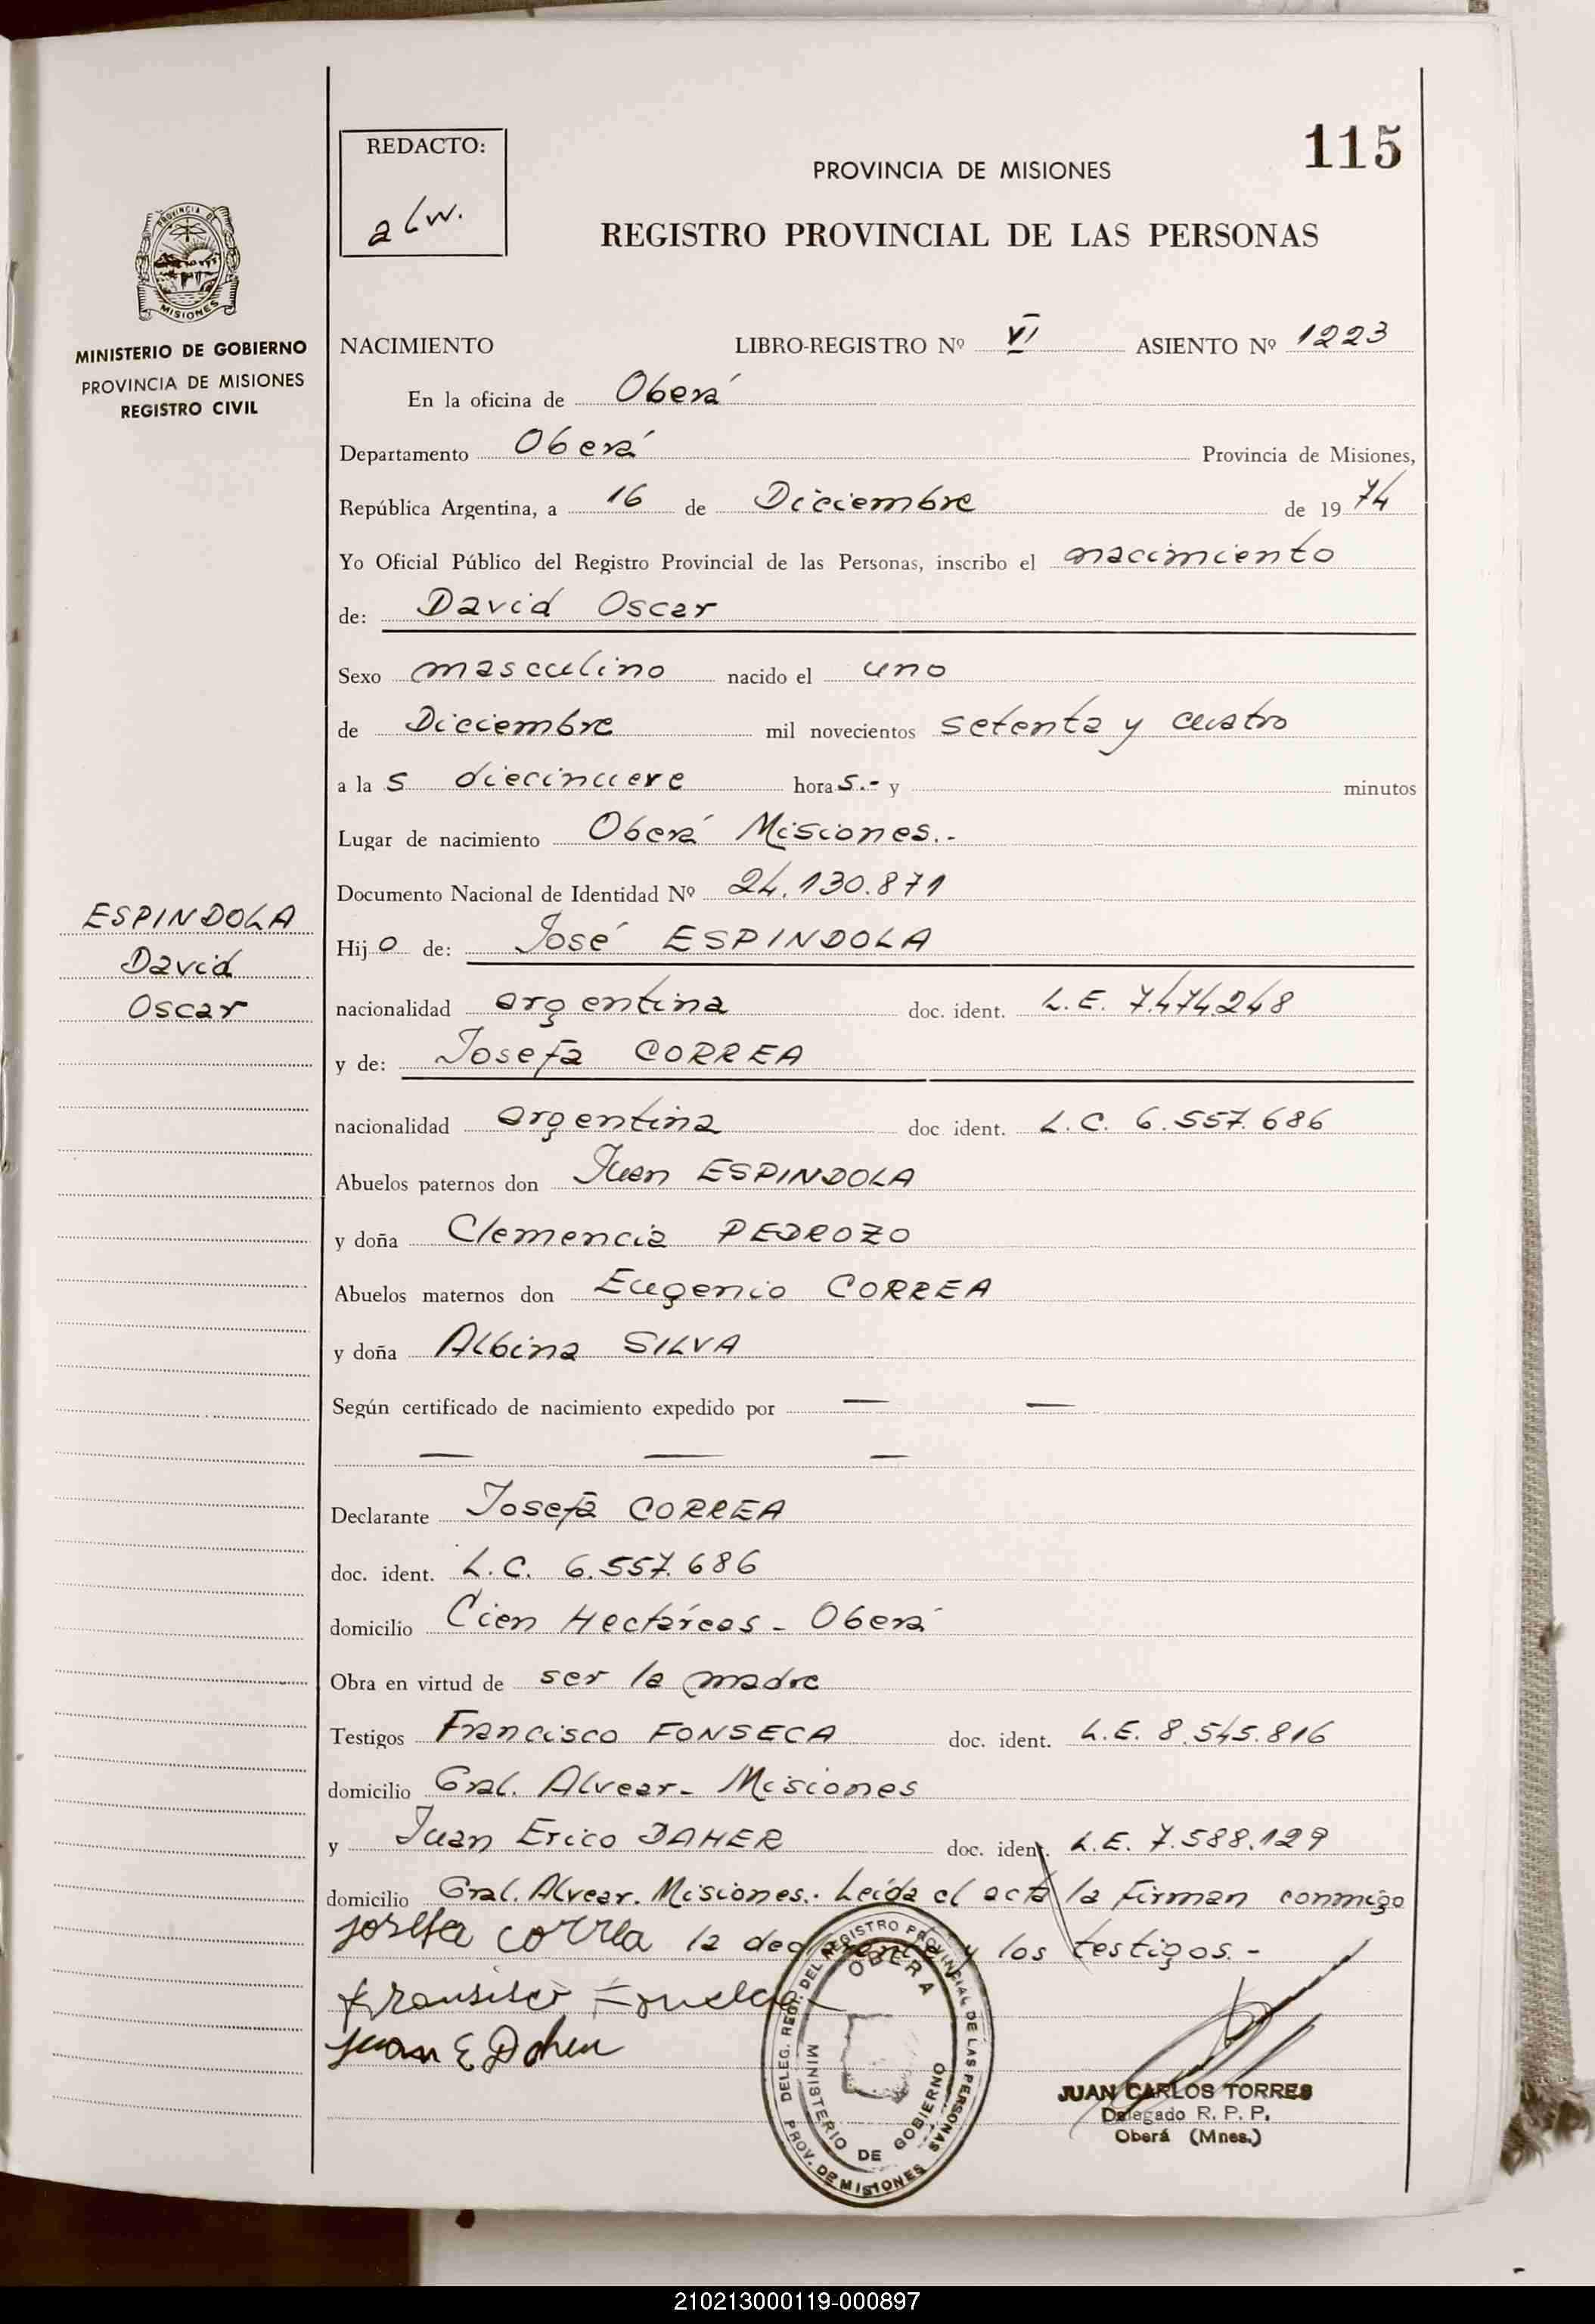 115
REDACTO:
alw.
PROVINCIA DE MISIONES
REGISTRO PROVINCIAL DE LAS PERSONAS
PROVINCIA DE
MISIONES
MINISTERIO DE GOBIERNO
PROVINCIA DE MISIONES
REGISTRO CIVIL
NACIMIENTO LIBRO-REGISTRO Nº VI ASIENTO Nº 1223
En la oficina de Oberá
Departamento Oberá Provincia de Misiones,
República Argentina, a 16 de Diciembre de 1974
Yo Oficial Público del Registro Provincial de las Personas, inscribo el nacimiento
de: David Oscar
Sexo masculino nacido el uno
de Diciembre mil novecientos setenta y cuatro
a las diecinueve horas.- y minutos
Lugar de nacimiento Oberá Misiones.-
Documento Nacional de Identidad Nº 24.130.871
ESPINDOLA
David
Oscar
Hijo de: José ESPINDOLA
nacionalidad argentina doc. ident. L.E. 7.474.248
y de: Josefa CORREA
nacionalidad argentina doc. ident. L.C. 6.557.686
Abuelos paternos don Juan ESPINDOLA
y doña Clemencia PEDROZO
Abuelos maternos don Eugenio CORREA
y doña Albina SILVA
Según certificado de nacimiento expedido por — —
— — —
Declarante Josefa CORREA
doc. ident. L.C. 6.557.686
domicilio Cien Hectáreas - Oberá
Obra en virtud de ser la madre
Testigos Francisco FONSECA doc. ident. L.E. 8.545.816
domicilio Gral. Alvear - Misiones
y Juan Erico DAHER doc. ident. L.E. 7.588.129
domicilio Gral. Alvear. Misiones.- Leída el acta la firman conmigo
Josefa Correa la declarante y los testigos.-
Juan E Daher
DELEG. REGI. DEL REGISTRO PROVINCIAL DE LAS PERSONAS
OBERA
MINISTERIO DE GOBIERNO
PROV. DE MISIONES
JUAN CARLOS TORRES
Delegado R. P. P.
Oberá (Mnes.)
210213000119-000897